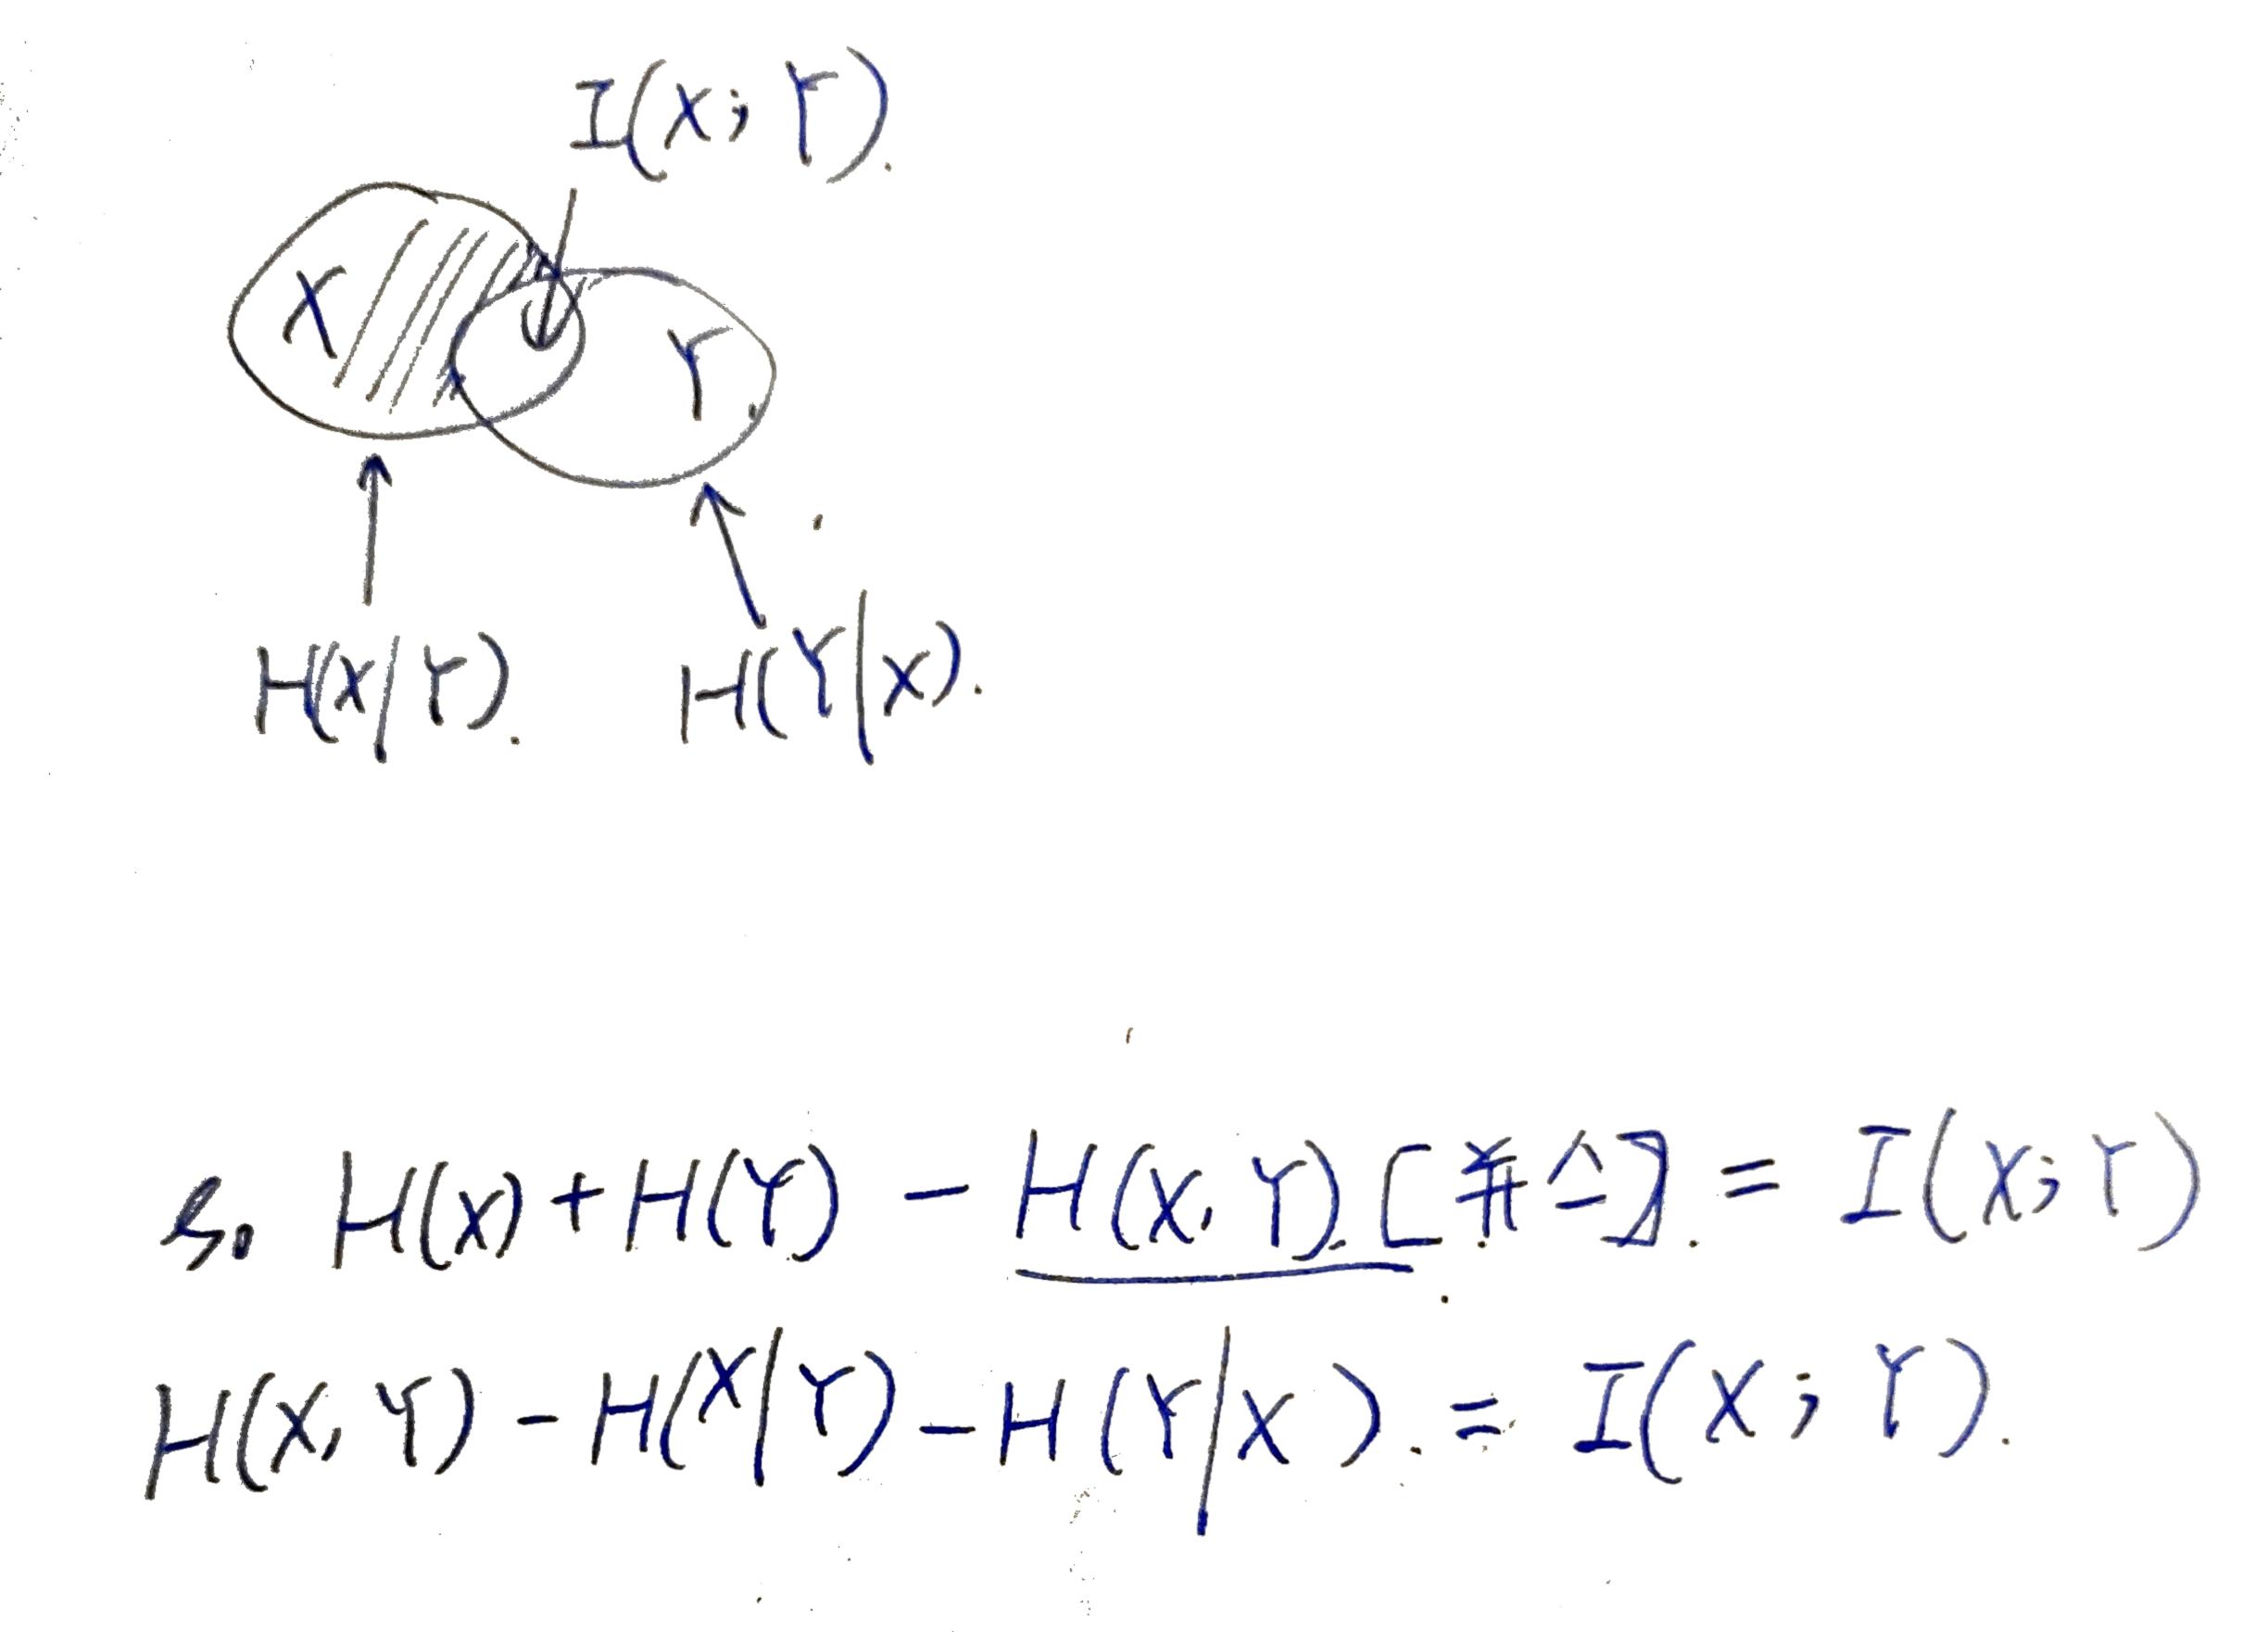 I(X; Y).
X
Y
H(X|Y).
H(Y|X).
So H(X) + H(Y) - H(X, Y). [并合]. = I(X; Y)
H(X, Y) - H(X|Y) - H(Y|X). = I(X; Y).